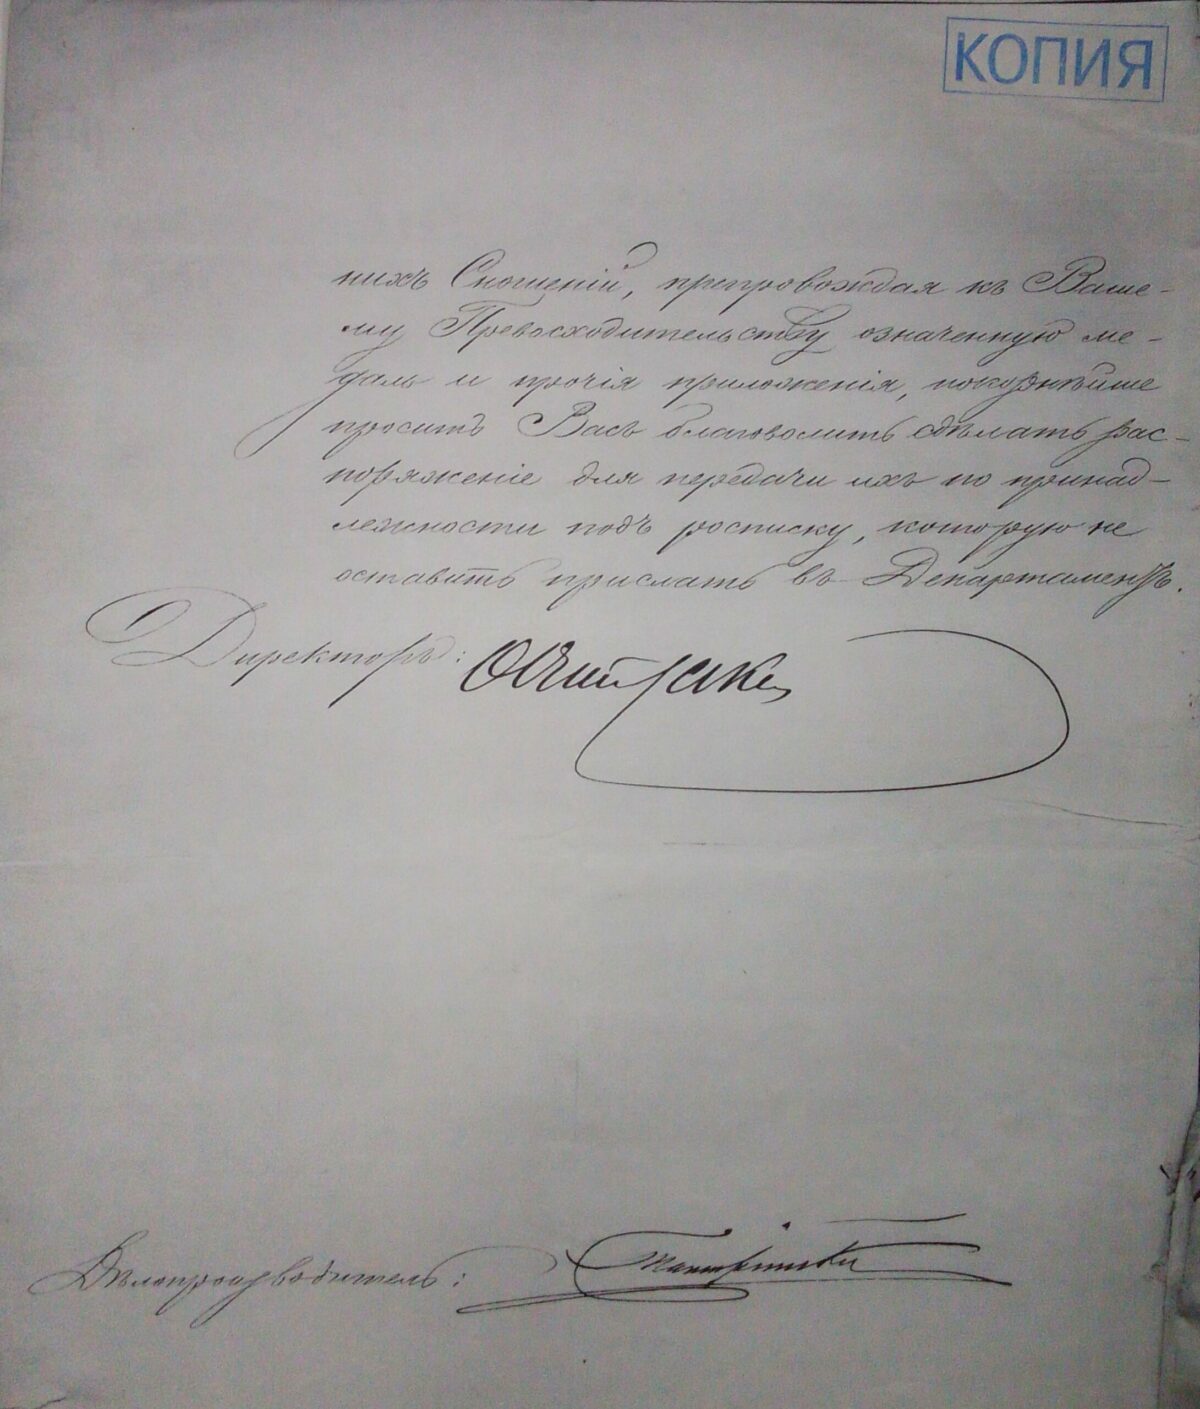 КОПИЯ
нихъ Сношеній, препровождая къ Ваше-
му Превосходительству означенную ме-
даль и прочія приложенія, покорнѣйше
проситъ Васъ благоволить сдѣлать рас-
поряженіе для передачи ихъ по принад-
лежности подъ росписку, которую не
оставить прислать въ Департаментъ.
Директоръ:
Дѣлопроизводитель: